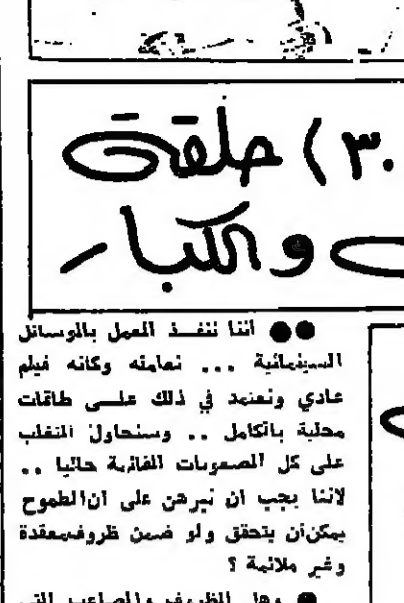 ٣٠) حلقة
والكبار
●● اننا ننفـذ العمل بالوسائل
السينمائية ... نعامله وكأنه فيلم
عادي ونعتمد في ذلك علـى طاقات
محلية بالكامل .. وسنحاول التغلب
على كل الصعوبات القائمة حاليا ..
لاننا يجب ان نبرهن على ان الطموح
يمكن أن يتحقق ولو ضمن ظروف معقدة
وغير ملائمة ؟
● وهل الظروف والمصاعب التي